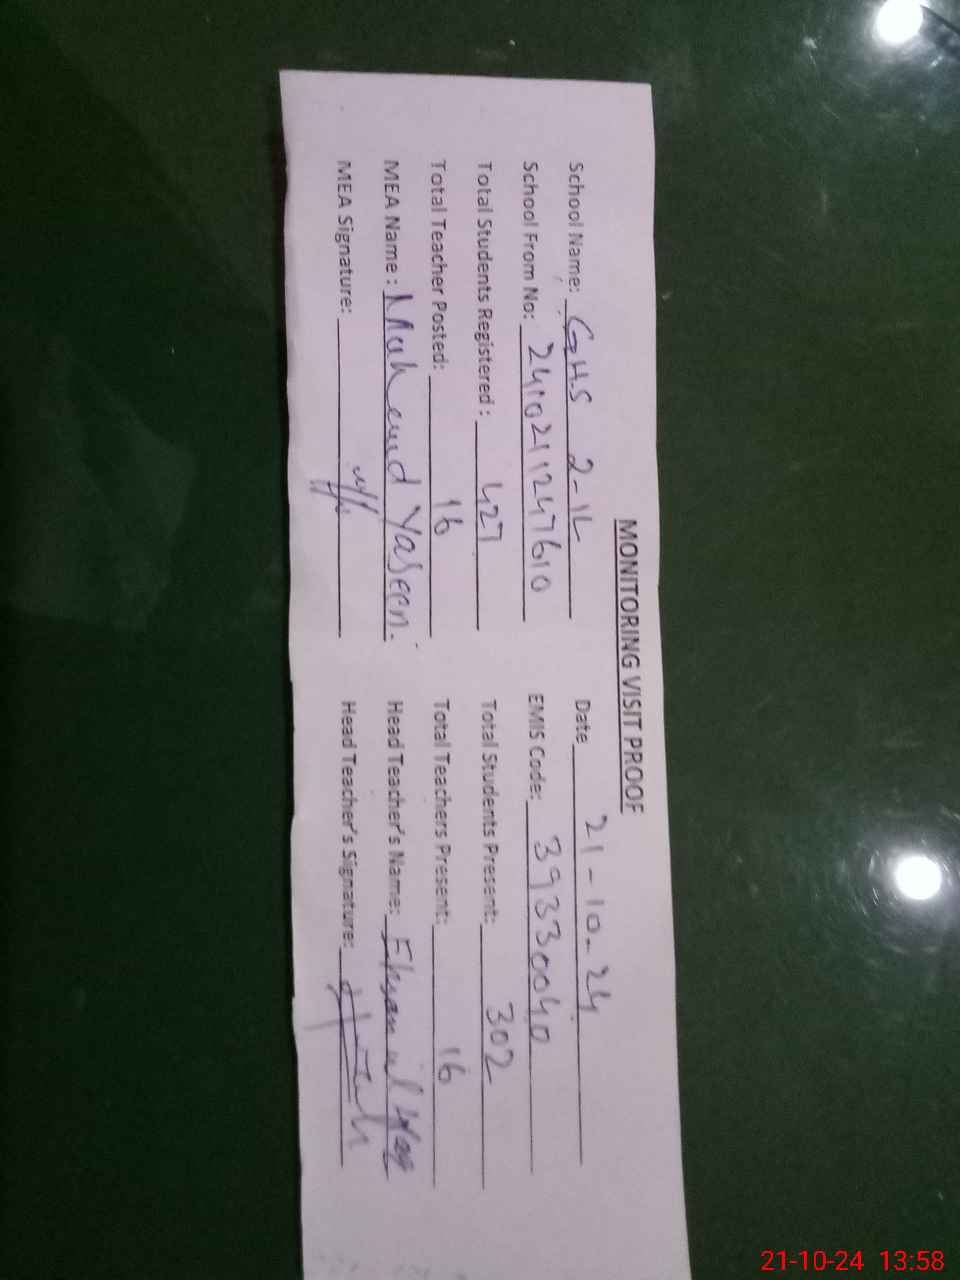 MONITORING VISIT PROOF
School Name: G.H.S 2-1L Date 21-10-24
School From No: 241021124 7610 EMIS Code: 39330040
Total Students Registered : 427 Total Students Present: 302
Total Teacher Posted: 16 Total Teachers Present: 16
MEA Name : Mahemd Yaseen. Head Teacher's Name:
MEA Signature: Head Teacher's Signature:
21-10-24 13:58